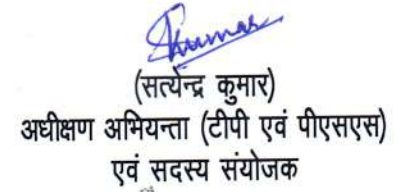 Kumar
(सत्येन्द्र कुमार)
अधीक्षण अभियन्ता (टीपी एवं पीएसएस)
एवं सदस्य संयोजक